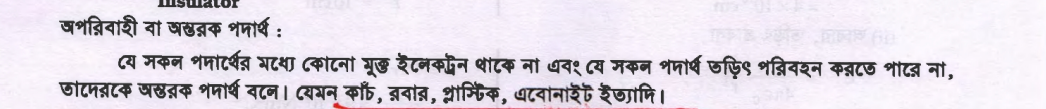 Insulator
অপরিবাহী বা অন্তরক পদার্থ :
যে সকল পদার্থের মধ্যে কোনো মুক্ত ইলেকট্রন থাকে না এবং যে সকল পদার্থ তড়িৎ পরিবহন করতে পারে না,
তাদেরকে অন্তরক পদার্থ বলে। যেমন কাঁচ, রবার, প্লাস্টিক, এবোনাইট ইত্যাদি।